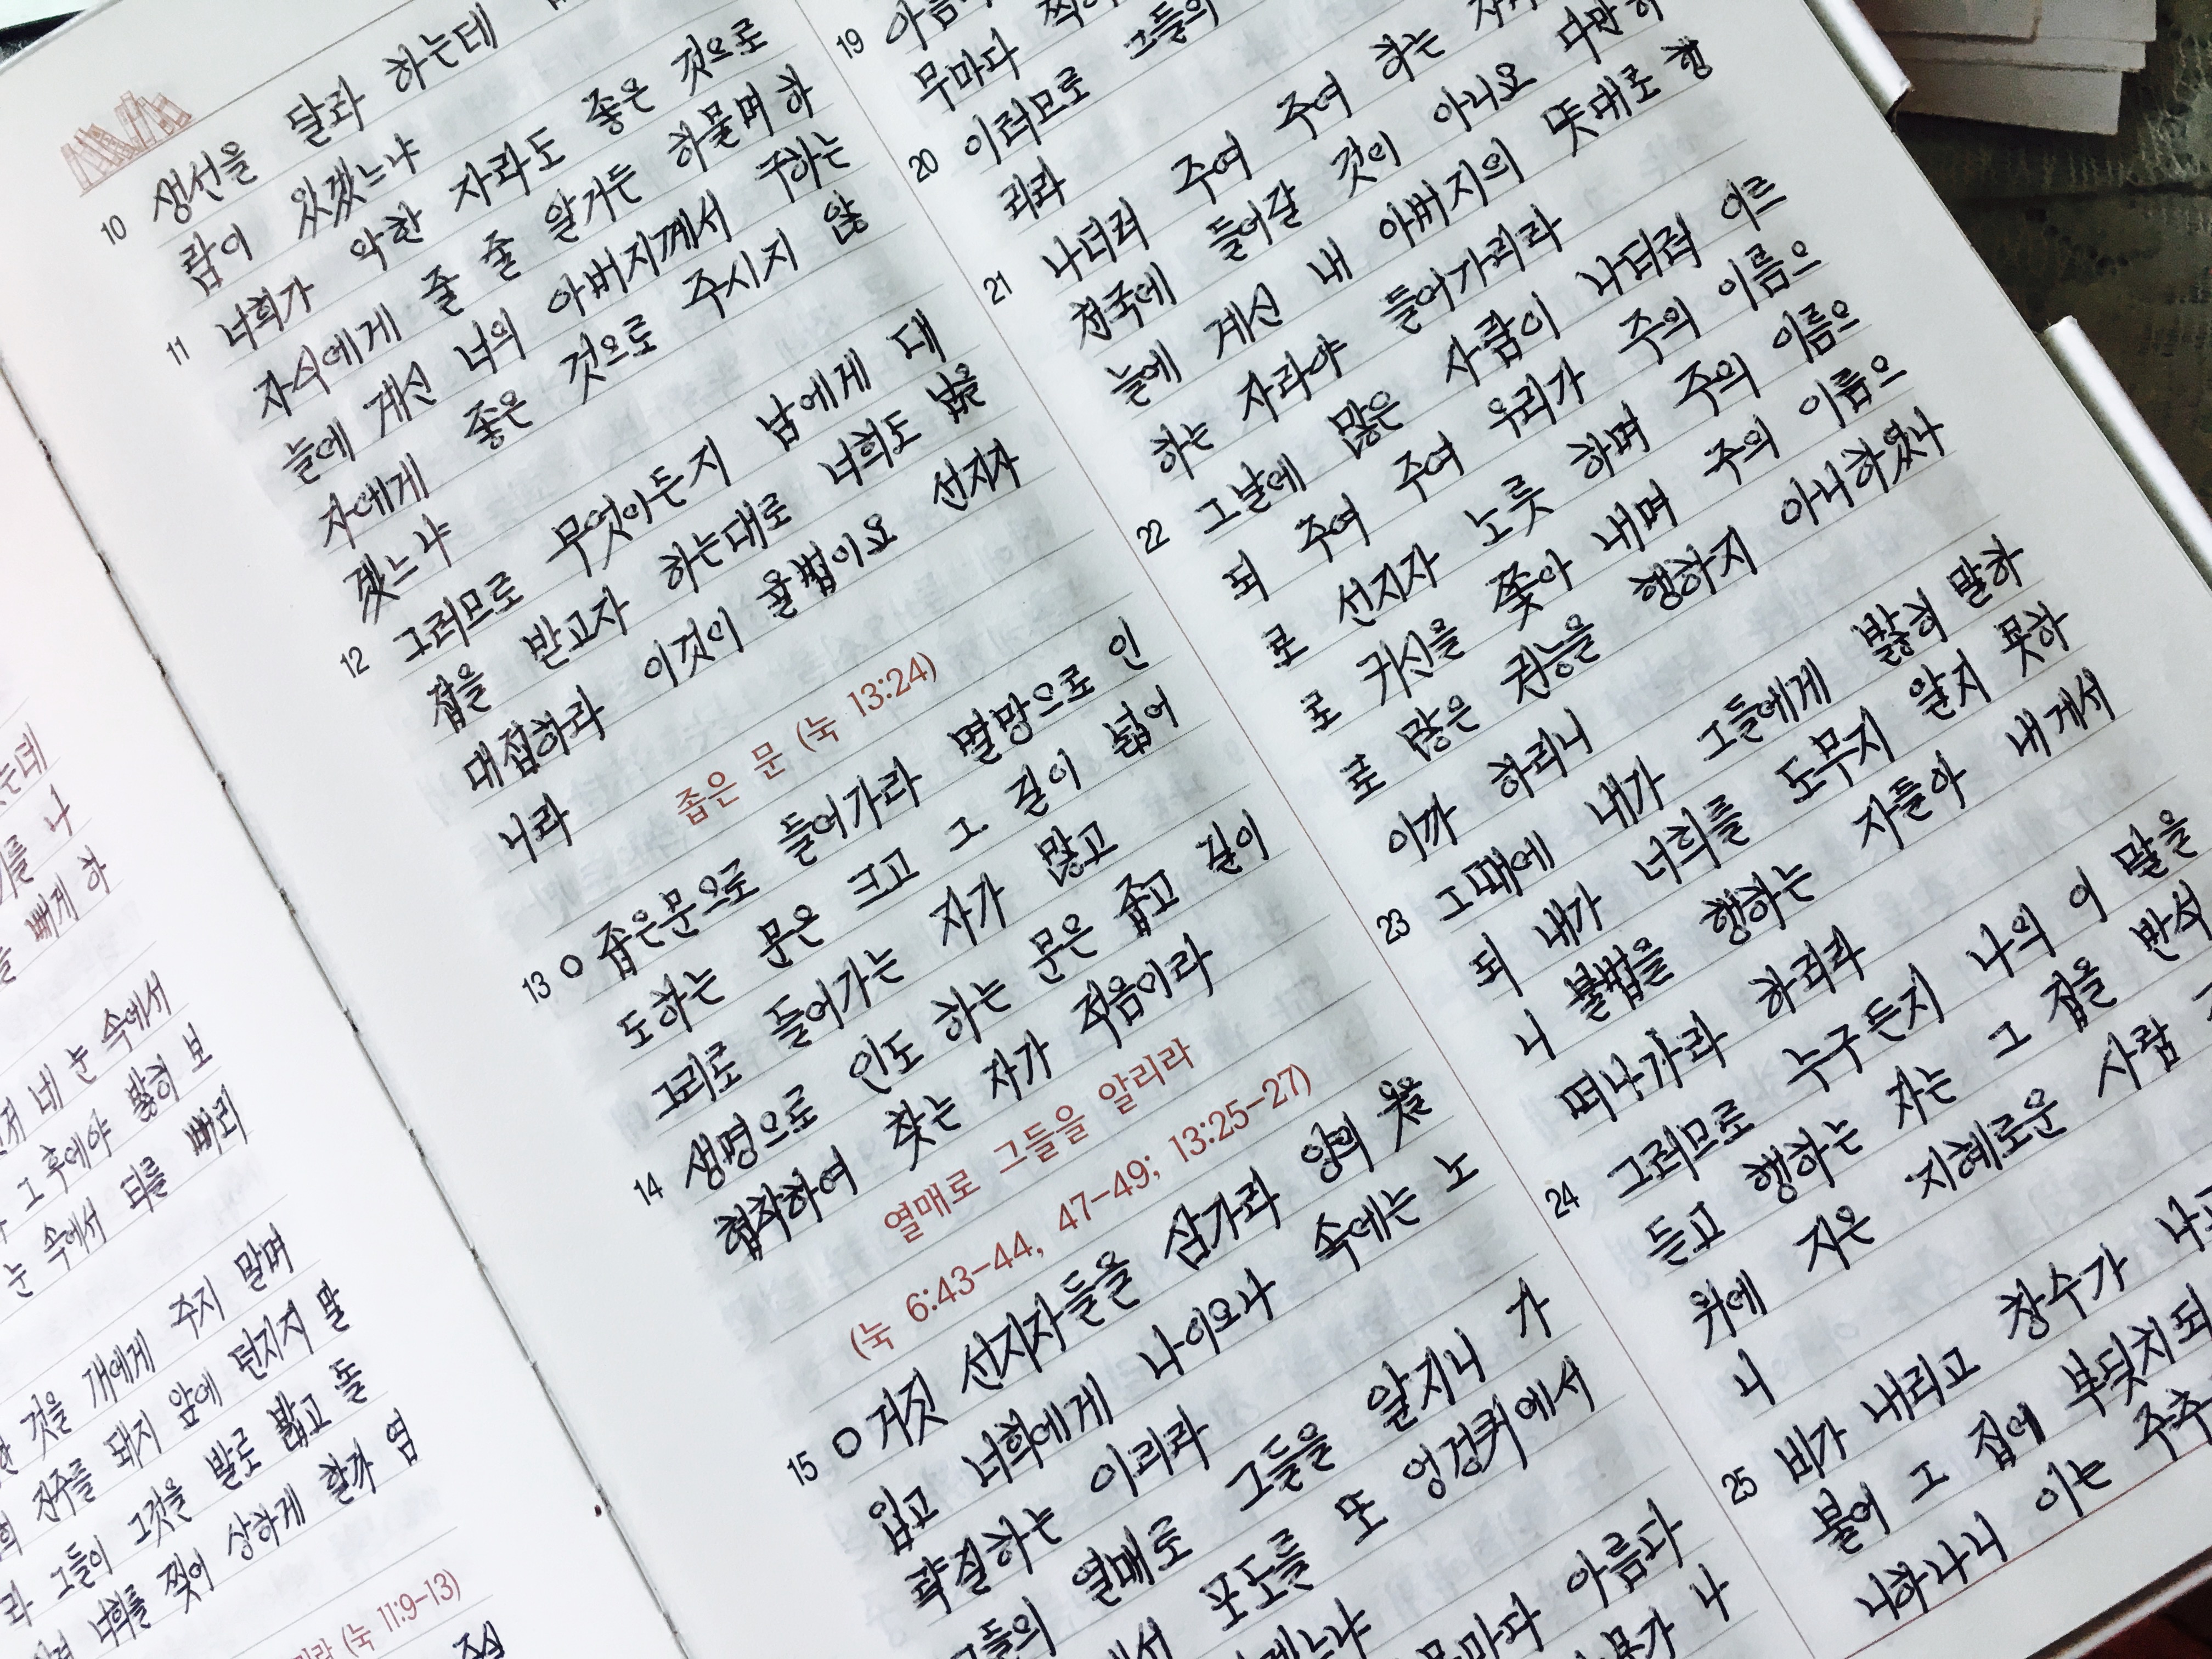 는데
를 나
빼게 하
네 눈 속에서
그 후에야 밝히 보
눈 속에서 티를 빼리
것을 개에게 주지 말며
진주를 돼지 앞에 던지지 말
라 그들이 그것을 발로 밟고 돌
너희를 찢어 상하게 할까 염
(눅 11:9-13)
주실
생선을 달라 하는데
10 람이 있겠느냐
11 너희가 악한 자라도 좋은 것으로
자식에게 줄 줄 알거든 하물며 하
늘에 계신 너의 아버지께서 구하는
자에게 좋은 것으로 주시지 않
겠느냐
12 그러므로 무엇이든지 남에게 대
접을 받고자 하는대로 너희도 남을
대접하라 이것이 율법이요 선지자
니라
좁은 문 (눅 13:24)
13 ○ 좁은문으로 들어가라 멸망으로 인
도하는 문은 크고 그 길이 넓어
그리로 들어가는 자가 많고
14 생명으로 인도 하는 문은 좁고 길이
협착하여 찾는 자가 적음이라
열매로 그들을 알리라
(눅 6:43-44, 47-49; 13:25-27)
15 ○ 거짓 선지자들을 삼가라 양의 옷을
입고 너희에게 나아오나 속에는 노
략질하는 이리라
그들의 열매로 그들을 알지니 가
에서 포도를 또 엉겅퀴에서
아름다
나
19 무마다
20 이러므로 그들의
리라
21 나더러 주여 주여 하는
천국에 들어갈 것이 아니요 다만 하
늘에 계신 내 아버지의 뜻대로 행
하는 자라야 들어가리라
22 그날에 많은 사람이 나더러 이르
되 주여 주여 우리가 주의 이름으
로 선지자 노릇 하며 주의 이름으
로 귀신을 쫓아 내며 주의 이름으
로 많은 권능을 행하지 아니하였나
이까 하리니
23 그때에 내가 그들에게 밝히 말하
되 내가 너희를 도무지 알지 못하
니 불법을 행하는 자들아 내게서
떠나가라 하리라
24 그러므로 누구든지 나의 이 말을
듣고 행하는 자는 그 집을 반석
위에 지은 지혜로운 사람
니
25 비가 내리고 창수가 나고
불어 그 집에 부딪치되
니하나니 이는 주추